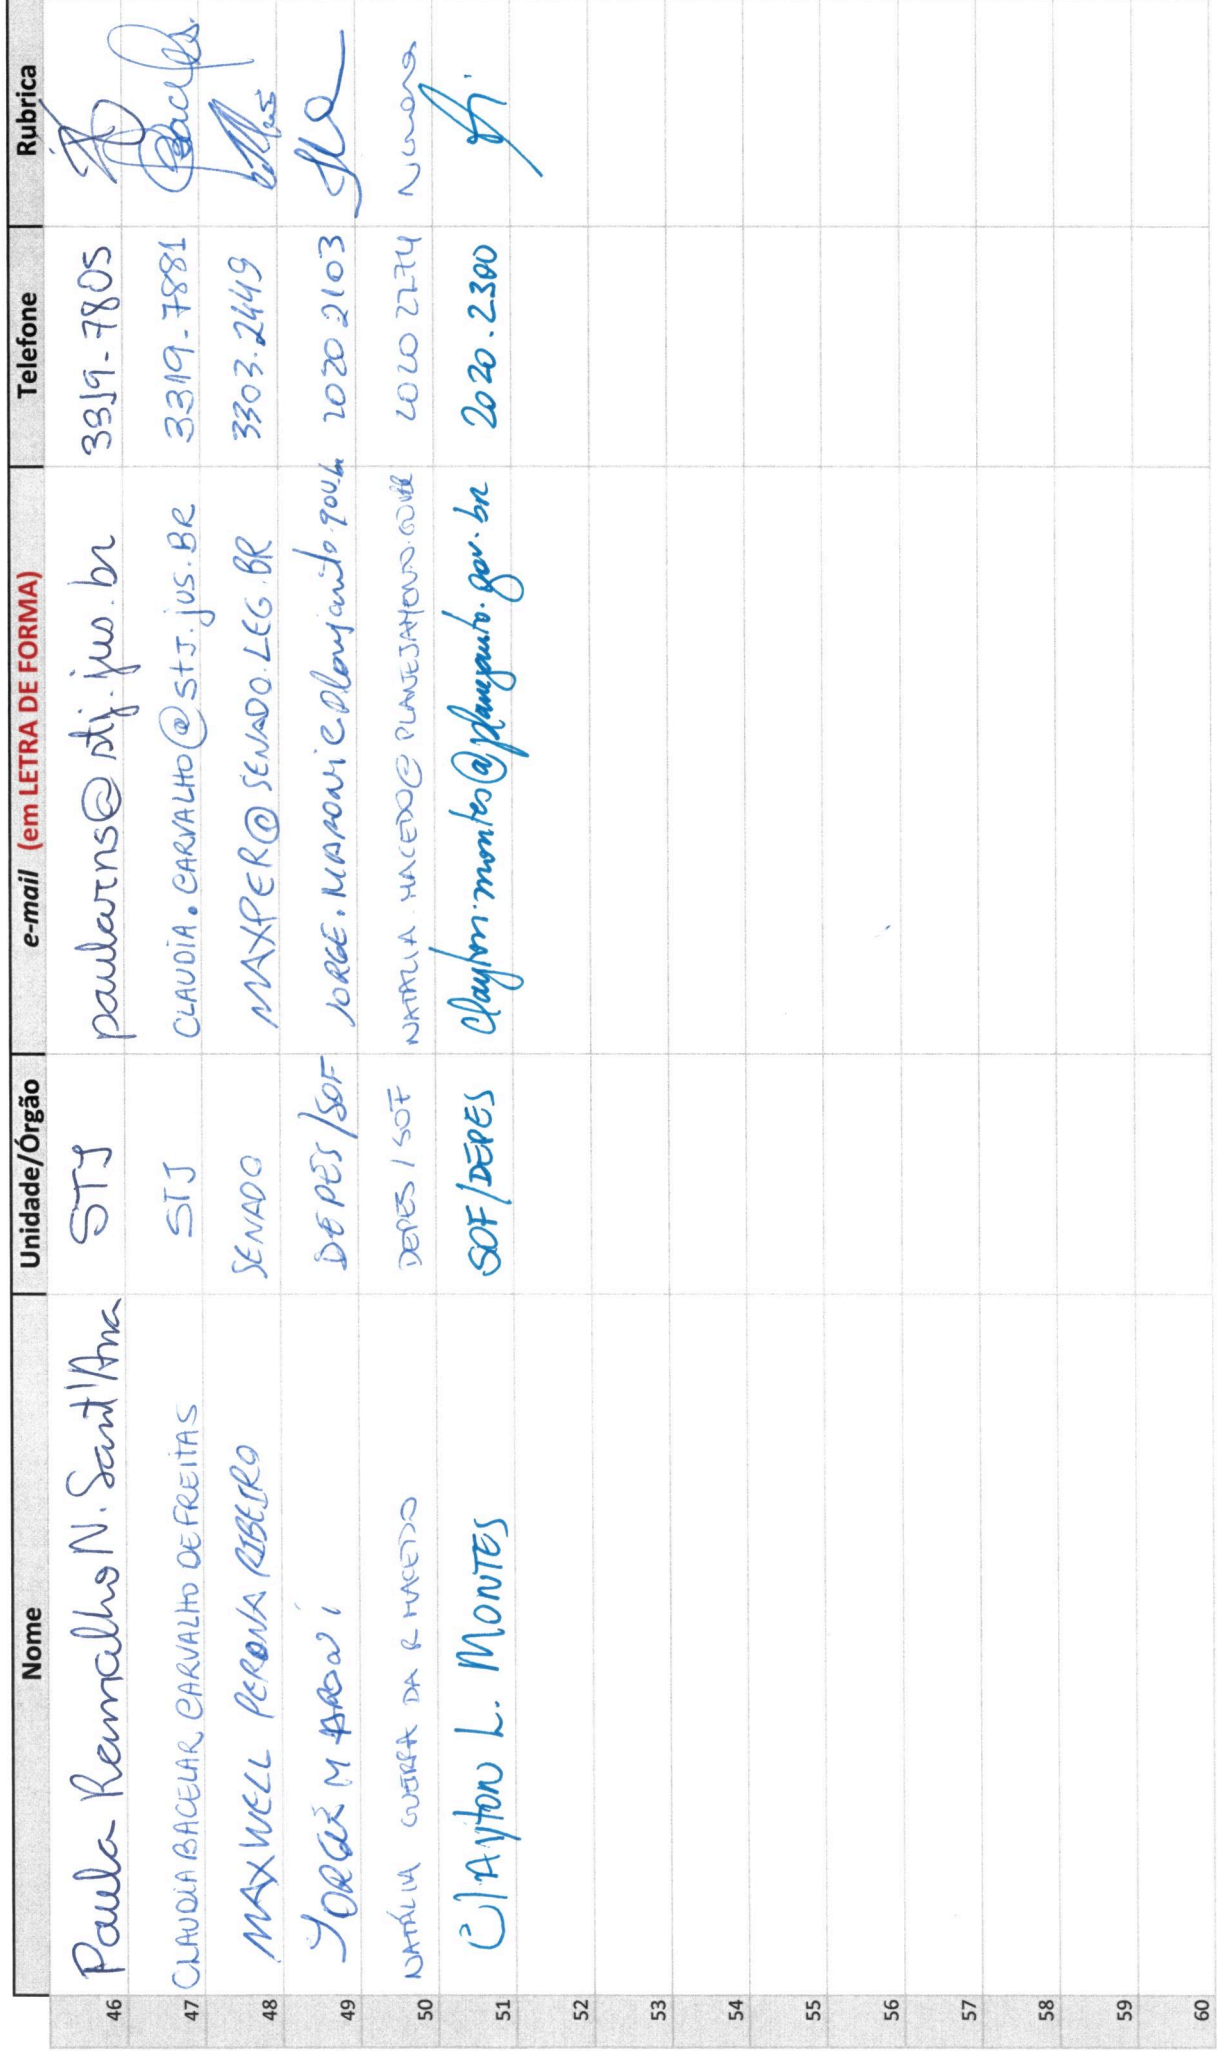 Nome Unidade/Órgão e-mail (em LETRA DE FORMA) Telefone Rubrica
46 Paula Ramalho N. Sant'Ana STJ paularns@stj.jus.br 3319-7805
47 CLAUDIA BACELAR CARVALHO DE FREITAS STJ CLAUDIA.CARVALHO@STJ.jus.BR 3319-7881
48 MAXWELL PERONA RIBEIRO SENADO MAXPER@SENADO.LEG.BR 3303.2449
49 JORGE MARONI DEPES/SOF JORGE.MARONI@planejamento.gov.br 2020 2103
50 NATÁLIA GUERRA DA R MACEDO DEPES/SOF NATALIA.MACEDO@PLANEJAMENTO.GOV.BR 2020 2274
51 Clayton L. MONTES SOF/DEPES Clayton.montes@planejamento.gov.br 2020.2300
52
53
54
55
56
57
58
59
60